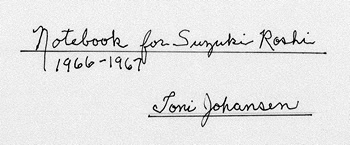 Notebook for Suzuki Roshi
1966-1967
Toni Johansen